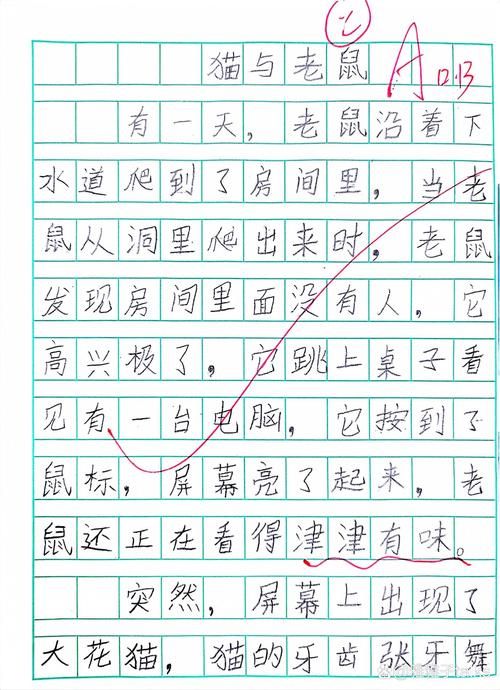 猫与老鼠
有一天，老鼠沿着下
水道爬到了房间里，当老
鼠从洞里爬出来时，老鼠
发现房间里面没有人，它
高兴极了，它跳上桌子看
见有一台电脑，它按到了
鼠标，屏幕亮了起来，老
鼠还正在看得津津有味。
突然，屏幕上出现了
大花猫，猫的牙齿张牙舞